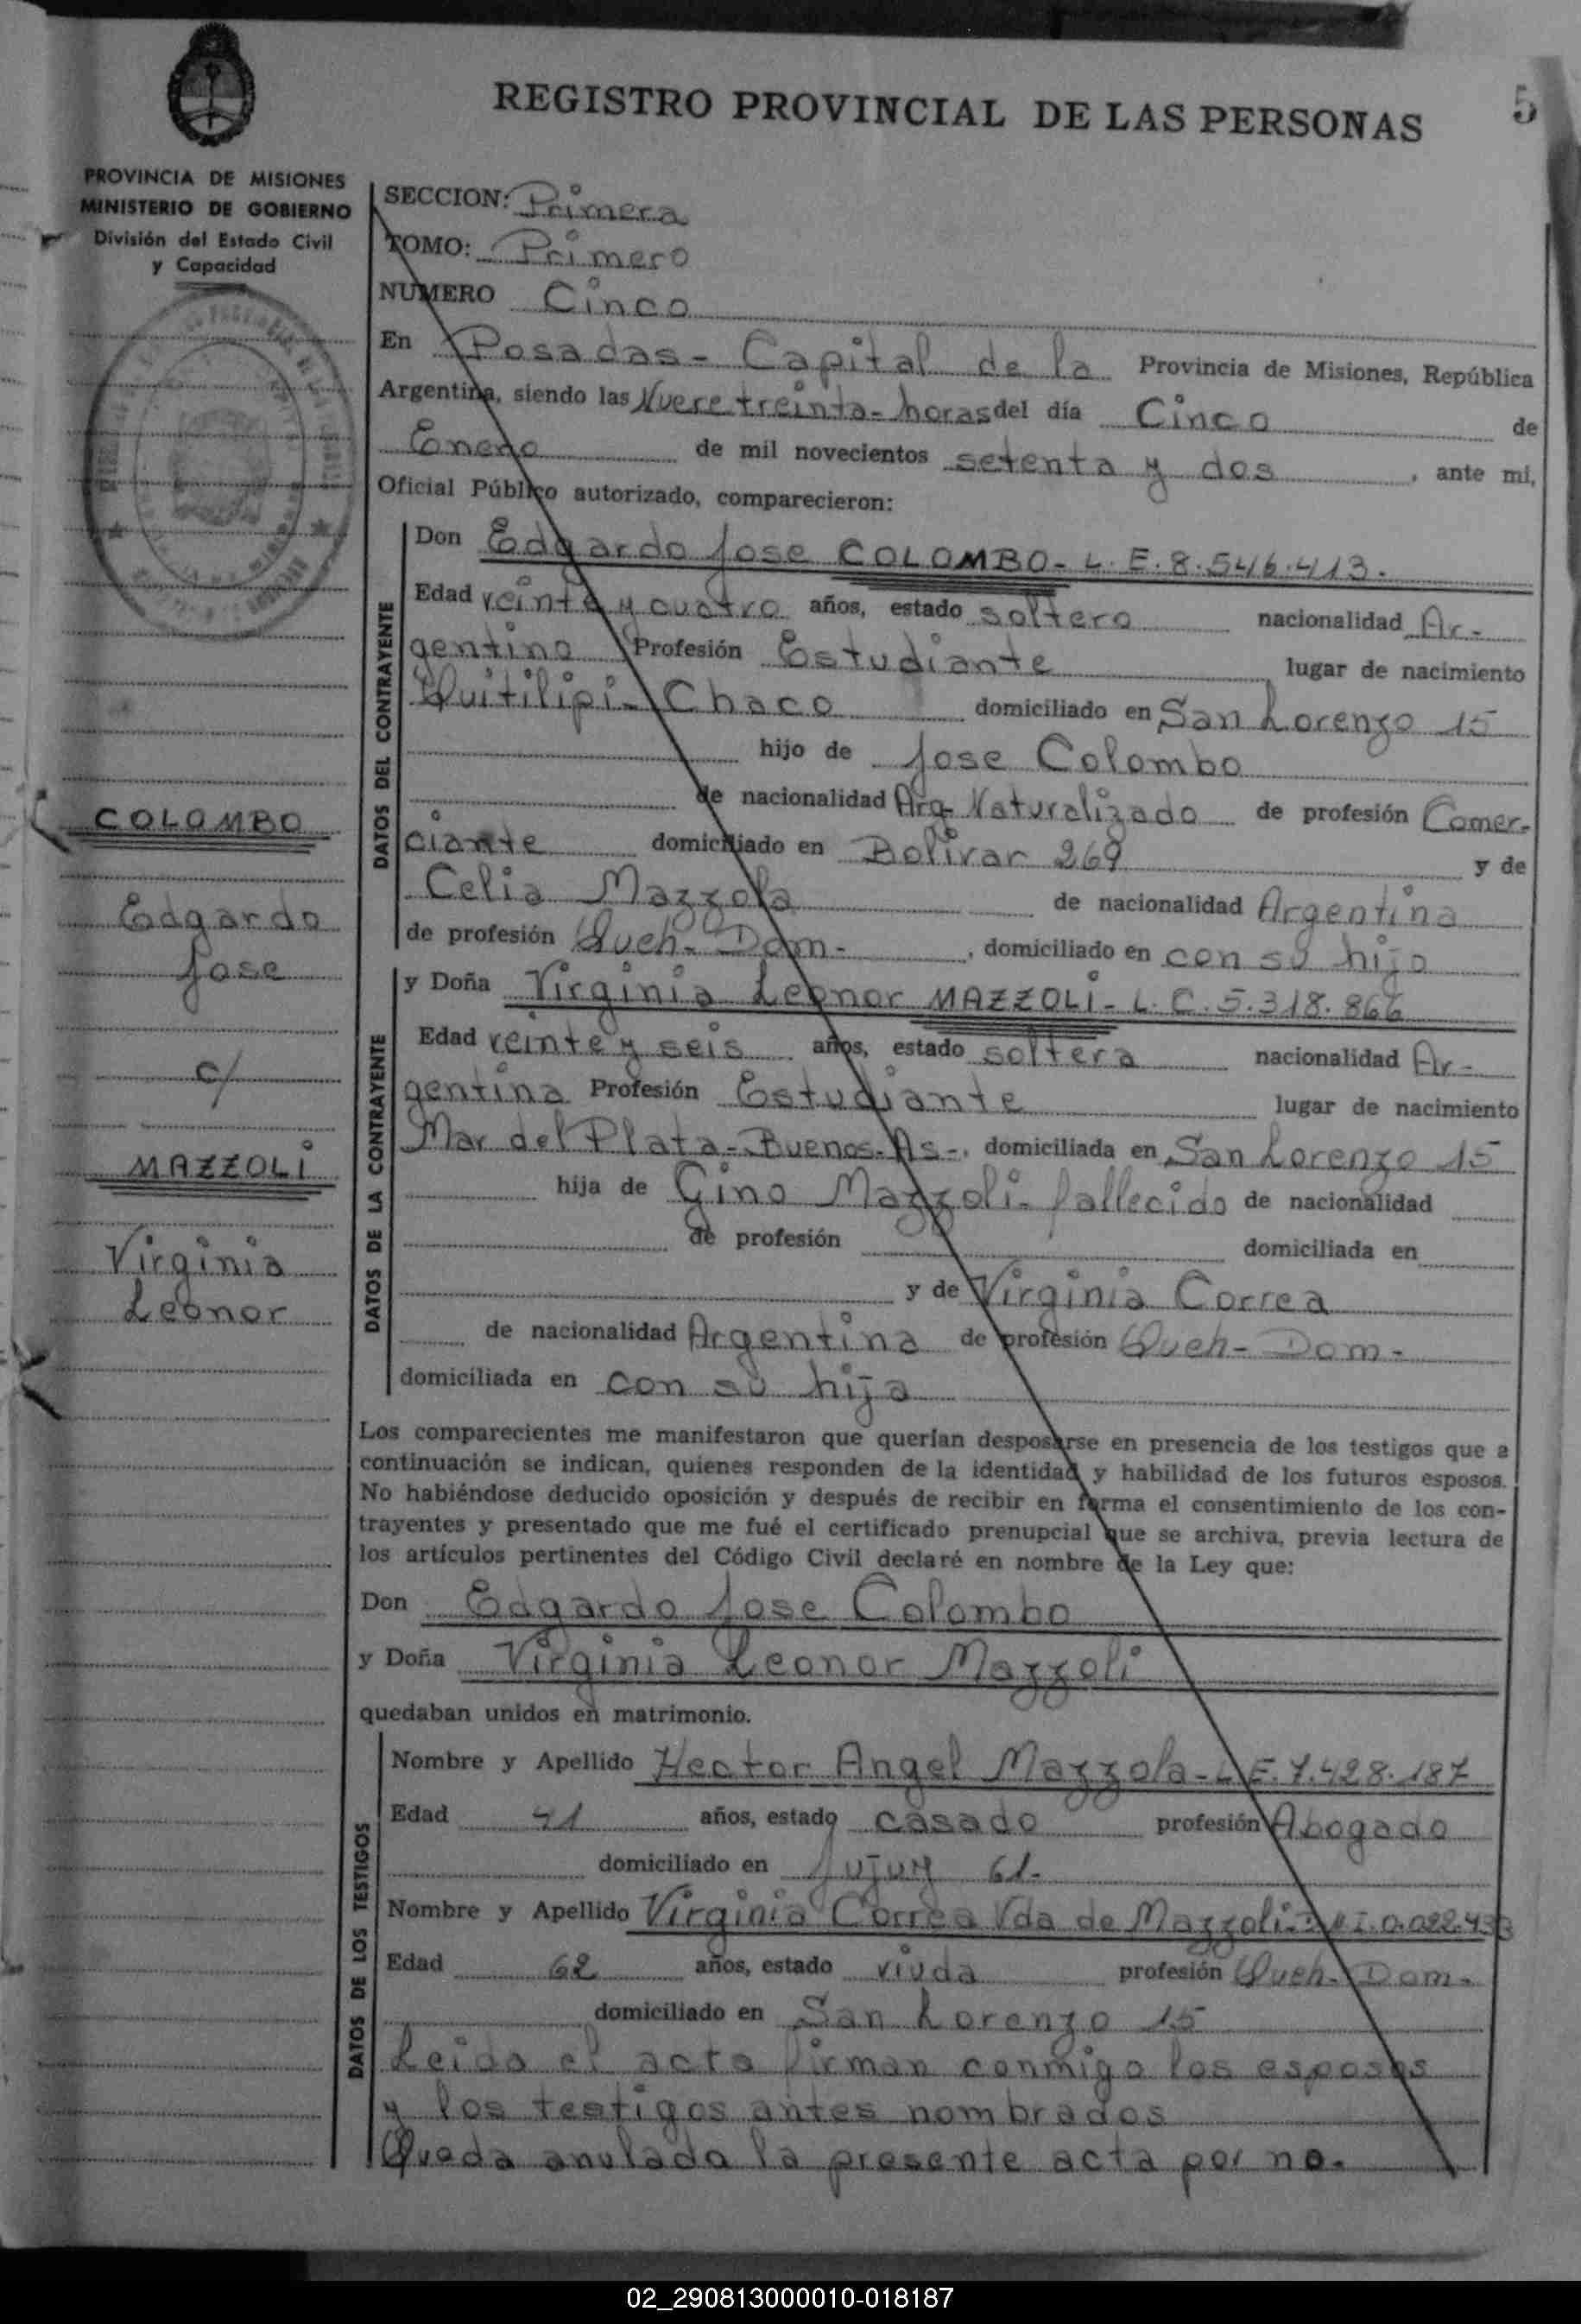 REGISTRO PROVINCIAL DE LAS PERSONAS
5
PROVINCIA DE MISIONES
MINISTERIO DE GOBIERNO
División del Estado Civil
y Capacidad
SECCION: Primera
TOMO: Primero
NUMERO Cinco
En Posadas - Capital de la Provincia de Misiones, República
Argentina, siendo las Nueve treinta - horas del día Cinco de
Enero de mil novecientos setenta y dos, ante mi,
Oficial Público autorizado, comparecieron:
DATOS DEL CONTRAYENTE
Don Edgardo Jose COLOMBO - L. E. 8.546.413.
Edad veinte y cuatro años, estado soltero nacionalidad Ar-
gentino Profesión Estudiante lugar de nacimiento
Quitilipi - Chaco domiciliado en San Lorenzo 15
hijo de Jose Colombo
de nacionalidad Arg- Naturalizado de profesión Comer-
ciante domiciliado en Bolivar 269 y de
Celia Mazzola de nacionalidad Argentina
de profesión Queh- Dom-, domiciliado en con su hijo
COLOMBO
Edgardo
Jose
c/
MAZZOLI
Virginia
Leonor
DATOS DE LA CONTRAYENTE
y Doña Virginia Leonor MAZZOLI - L. C. 5.318.866
Edad veinte y seis años, estado soltera nacionalidad Ar-
gentina Profesión Estudiante lugar de nacimiento
Mar del Plata - Buenos As-, domiciliada en San Lorenzo 15
hija de Gino Mazzoli - fallecido de nacionalidad
de profesión domiciliada en
y de Virginia Correa
de nacionalidad Argentina de profesión Queh- Dom-
domiciliada en con su hija
Los comparecientes me manifestaron que querían desposarse en presencia de los testigos que a
continuación se indican, quienes responden de la identidad y habilidad de los futuros esposos.
No habiéndose deducido oposición y después de recibir en forma el consentimiento de los con-
trayentes y presentado que me fué el certificado prenupcial que se archiva, previa lectura de
los artículos pertinentes del Código Civil declaré en nombre de la Ley que:
Don Edgardo Jose Colombo
y Doña Virginia Leonor Mazzoli
quedaban unidos en matrimonio.
DATOS DE LOS TESTIGOS
Nombre y Apellido Hector Angel Mazzola - L. E. 7.428.187
Edad 41 años, estado casado profesión Abogado
domiciliado en Jujuy 61-
Nombre y Apellido Virginia Correa Vda de Mazzoli - 0.022.433
Edad 62 años, estado viuda profesión Queh- Dom-
domiciliado en San Lorenzo 15
Leida el acta firman conmigo los esposos
y los testigos antes nombrados
Queda anulada la presente acta por no-
02_290813000010-018187